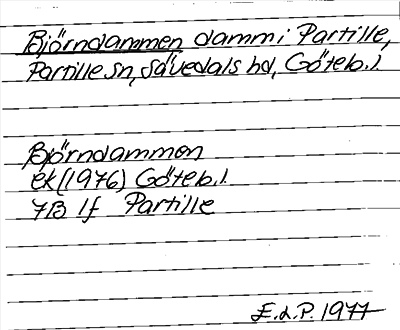 Björndammen damm i Partille,
Partille sn, Sävedals hd, Göteb. l.
Björndammen
ek (1976) Göteb. l.
7B 1f Partille
E.d.P. 1977